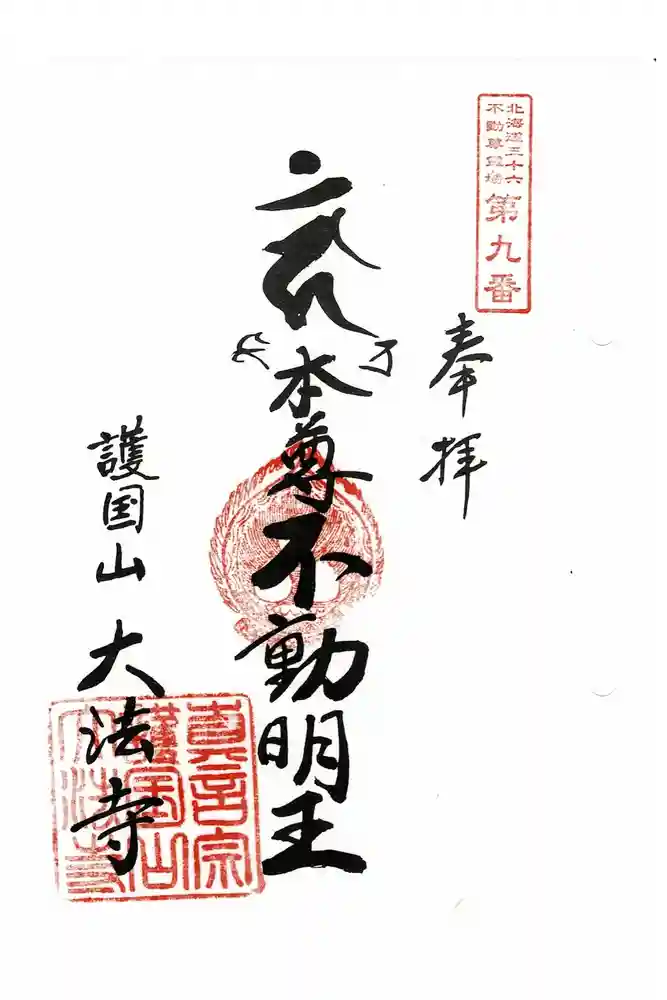 北海道三十六
不動尊霊場
第九番
奉拝
本尊不動明王
護国山 大法寺
真言宗
護国山
大法寺